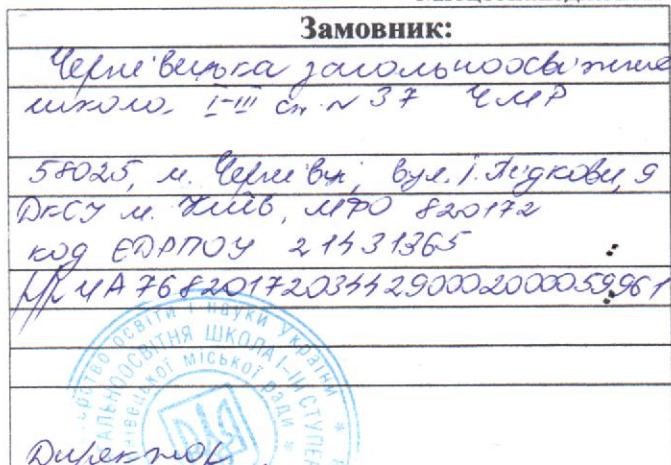 Замовник:
Чернівецька загальноосвітня
школа I-III ст. №37 ЧМР
58025, м. Чернівці, вул. І. Підкови, 9
ДКСУ м. Київ, МФО 820172
код ЄДРПОУ 21431365
р/р UA768201720344290002000059961
освіти і науки України
ОСВІТНЯ ШКОЛА I-III СТУПЕН
міської ради
Директор